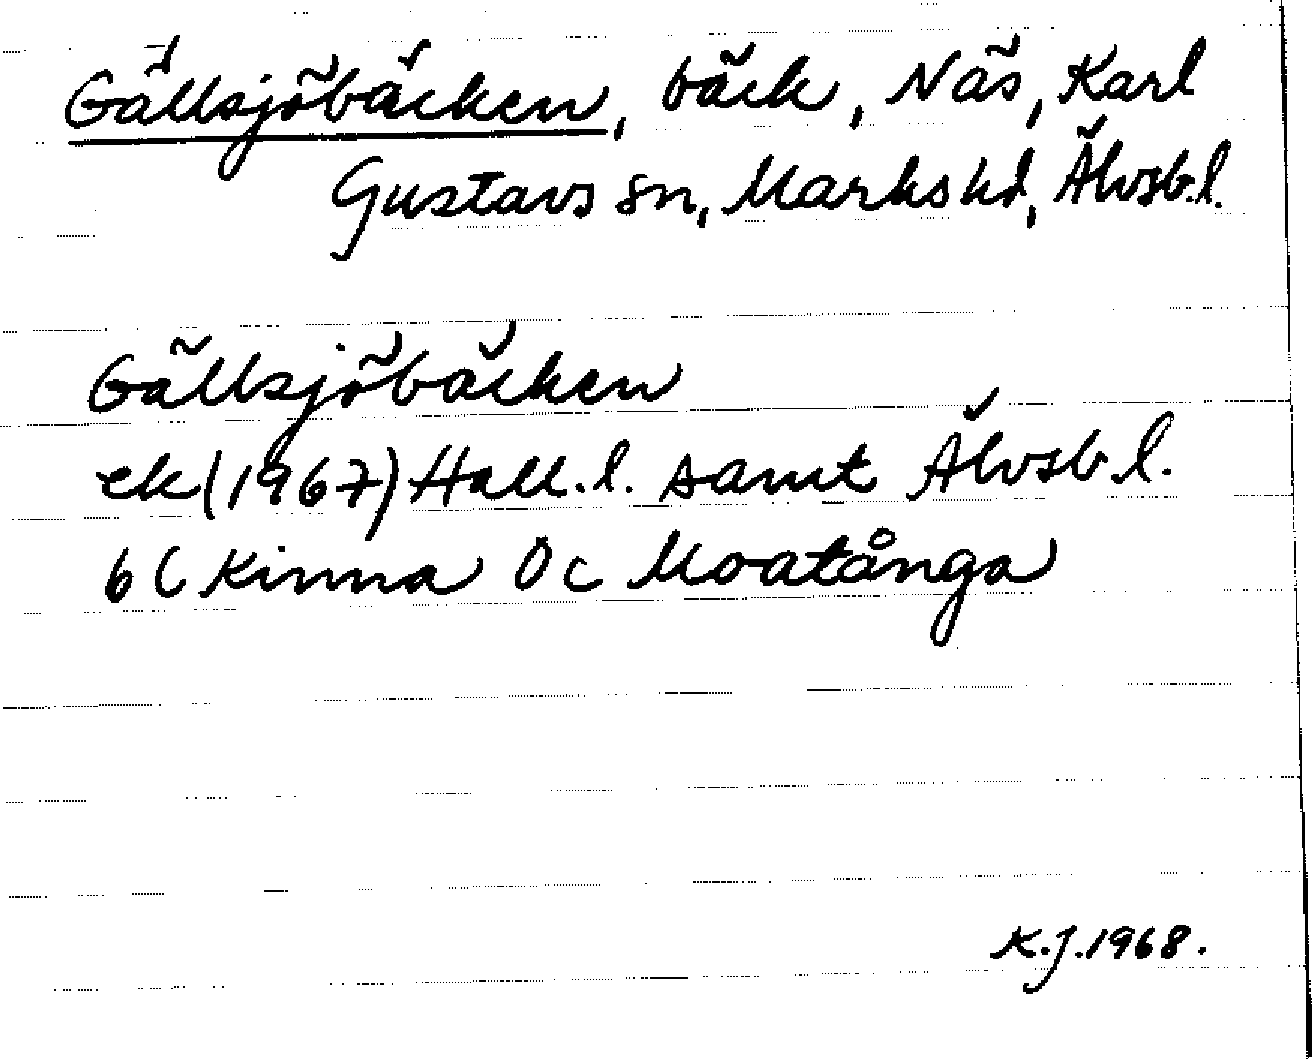 Gällsjöbäcken, bäck, Näs, Karl
Gustavs sn, Marks hd, Älvsb.l.
Gällsjöbäcken
ek (1967) Hall.l. samt Älvsb.l.
6 C Kinna 0 c Moatånga
K.J.1968.